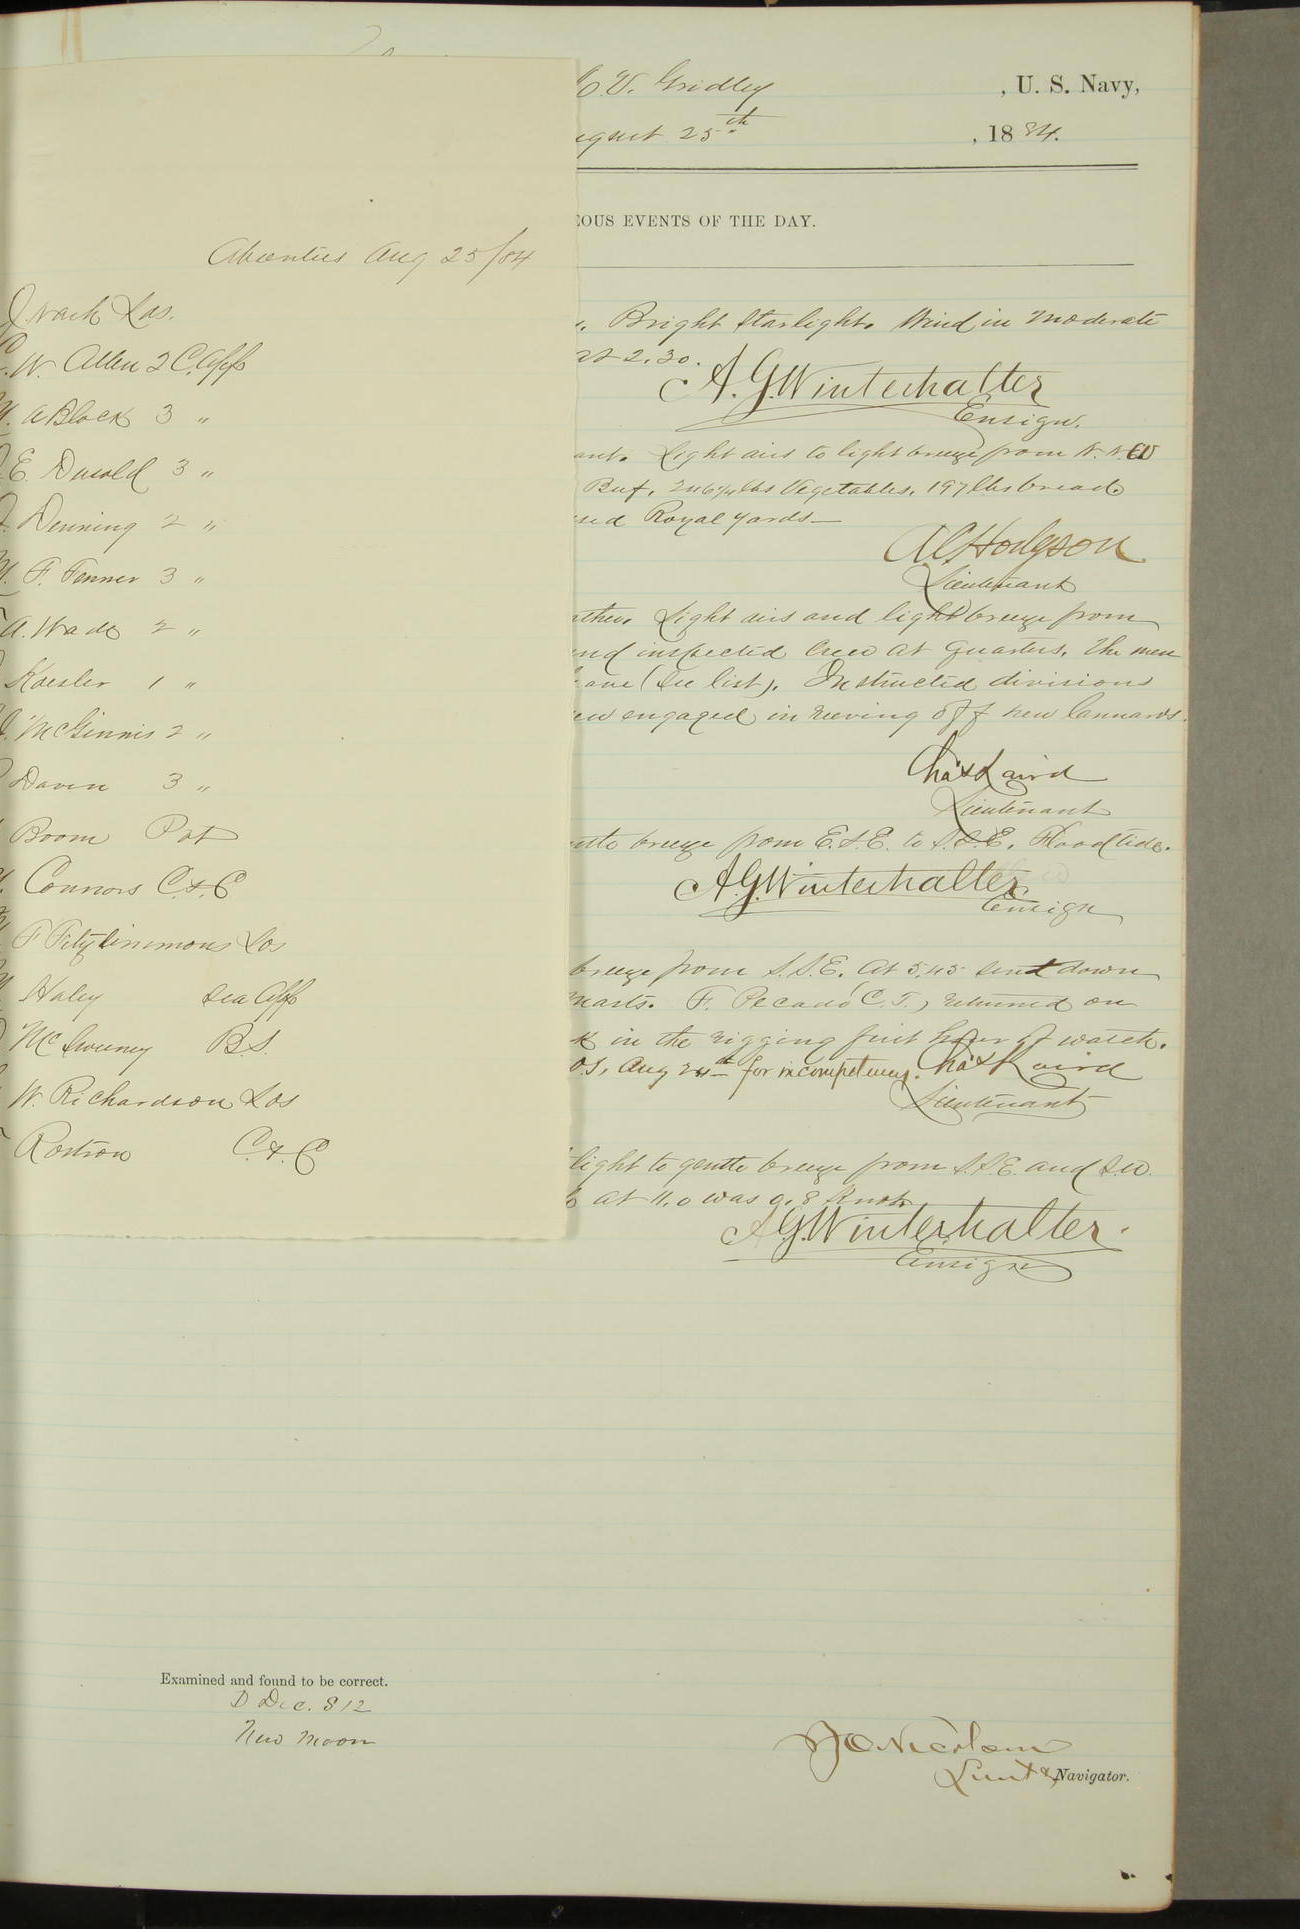 C. V. Gridley, U. S. Navy,
August 25th, 1884.
EOUS EVENTS OF THE DAY.
Absentees Aug 25/84
Nash Lds.
W. Allen 2 C. App
A Block 3 "
E. Duvold 3 "
Denning 2 "
F. Fenner 3 "
A. Wade 2 "
Koesler 1 "
McGinnis 2 "
Daven 3 "
Boom Pat
Connors C. & C
F Fitzsimmons Lds
Haley Sea App
McSweeney B.S.
W. Richardson Lds
Rostron C. & C
Bright Starlight. Wind in Moderate
at 2.30.
A. G. Winterhalter
Ensign.
Light airs to light breeze from N. N. W
Beef, 246 3/4 lbs Vegetables, 197 lbs bread.
Royal yards
A C Hodgson
Lieutenant
Light airs and light breeze from
and inspected crew at quarters. The men
(See list). Instructed divisions
engaged in reeving off new lannards.
Chas Laird
Lieutenant
breeze from E.S.E. to S.S.E. Flood tide.
A. G. Winterhalter
Ensign
breeze from S.S.E. At 5.45 sent down
masts. F. Pecado (C. T.) returned on
in the rigging first hour of watch.
O.S, Aug 24th for incompetency. Chas Laird
Lieutenant
light to gentle breeze from S.S.E. and S.W.
at 11.0 was 0.8 Knots.
A. G. Winterhalter.
Ensign
Examined and found to be correct.
D Dec. 812
New Moon
Lieut & Navigator.